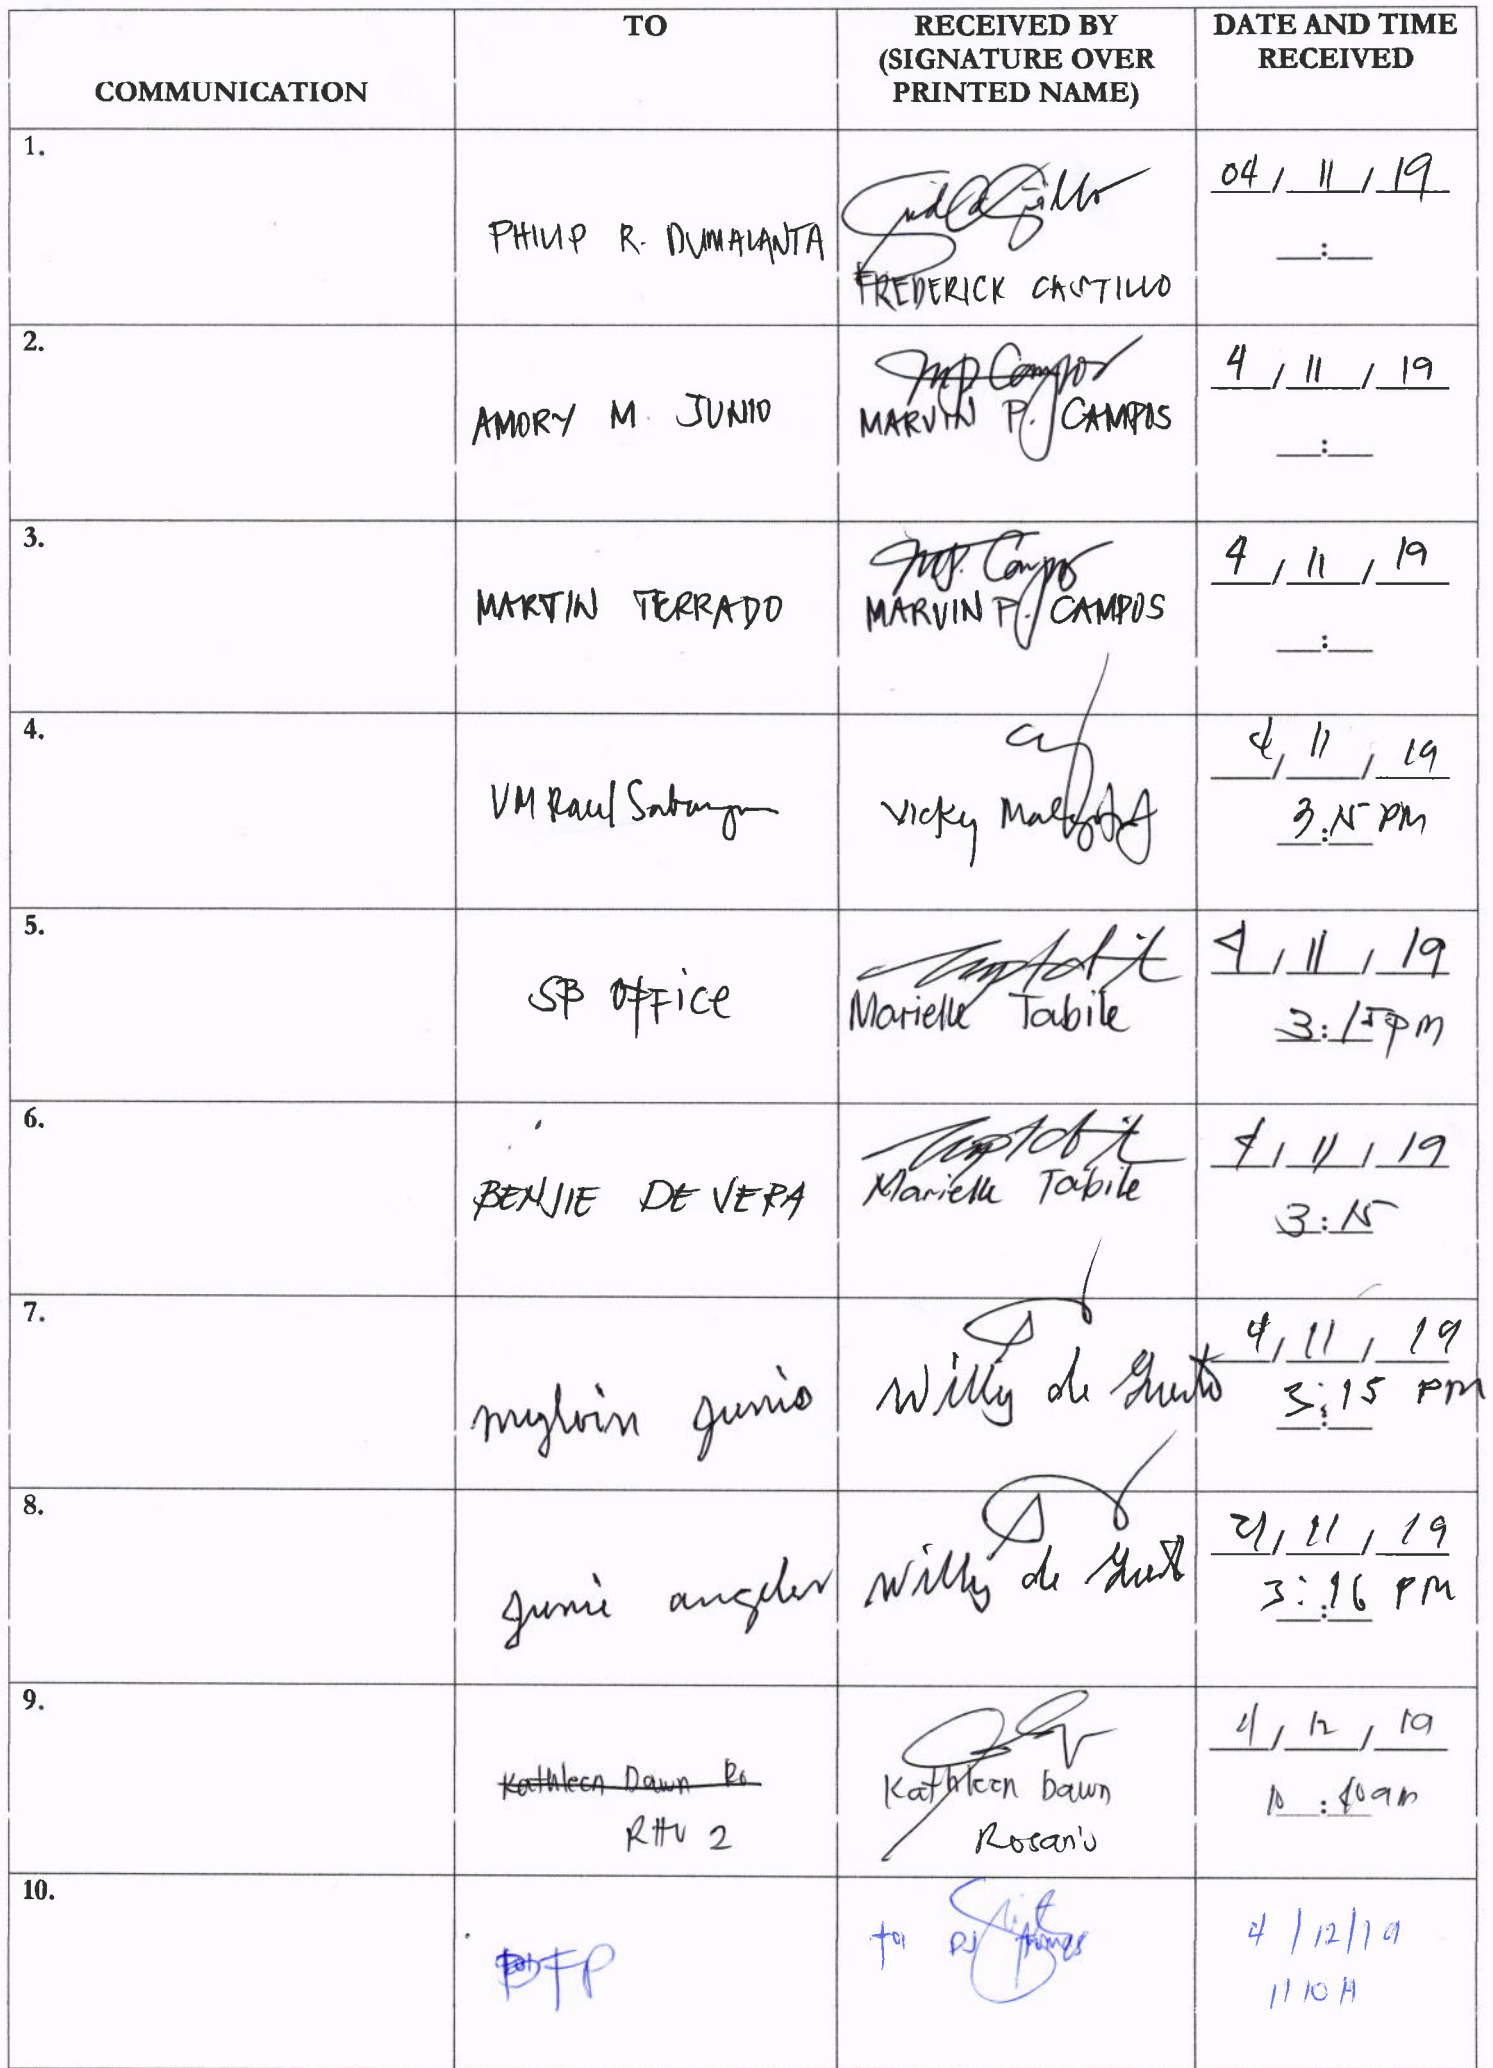 COMMUNICATION
TO
RECEIVED BY
(SIGNATURE OVER
PRINTED NAME)
DATE AND TIME
RECEIVED
1.
PHILIP R. DUMALANTA
FREDERICK CASTILLO
04 / 11 / 19
__:__
2.
AMORY M. JUNIO
MP Campos
MARVIN P. CAMPOS
4 / 11 / 19
__:__
3.
MARTIN TERRADO
MP. Campos
MARVIN P. CAMPOS
4 / 11 / 19
__:__
4.
VM Raul Sabangan
Vicky
4 / 11 / 19
3:15 PM
5.
SB OFFice
Marielle Tabile
4 / 11 / 19
3:15pm
6.
BENJIE DE VERA
Marielle Tabile
4 / 11 / 19
3:15
7.
mylvin junio
Willy de
4 / 11 / 19
3:15 PM
8.
junie angeles
Willy de
4 / 11 / 19
3:16 PM
9.
Kathleen Dawn Ro
RHU 2
Kathleen Dawn
Rosario
4 / 12 / 19
10:40am
10.
BFP
4 / 12 / 19
1110H